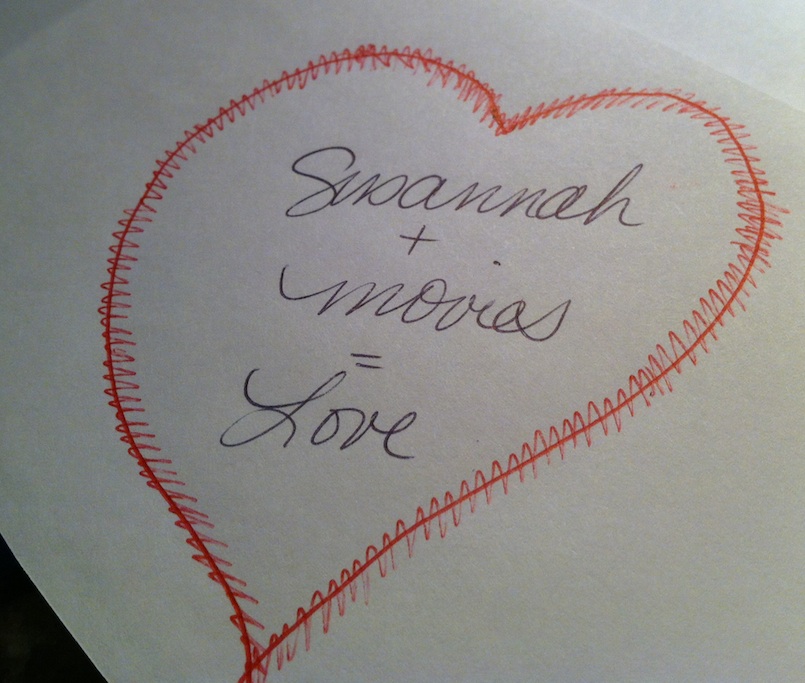 Susannah
+
movies
=
Love